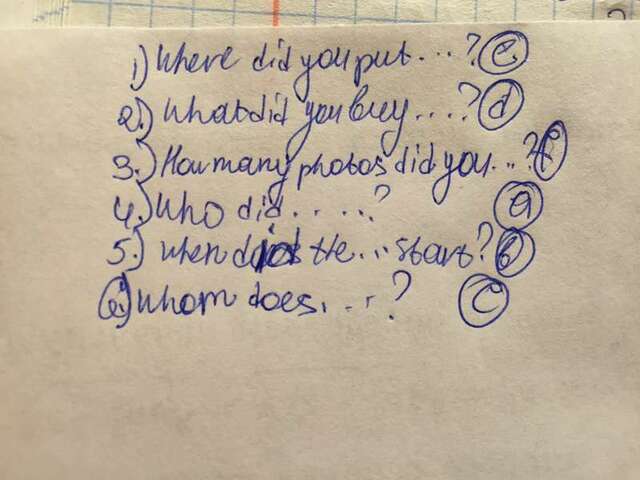 1) Where did you put...? e
2.) What did you buy....? d
3.) How many photos did you...? f
4.) Who did.....? a
5.) when did the... start? b
6.) Whom does....? c